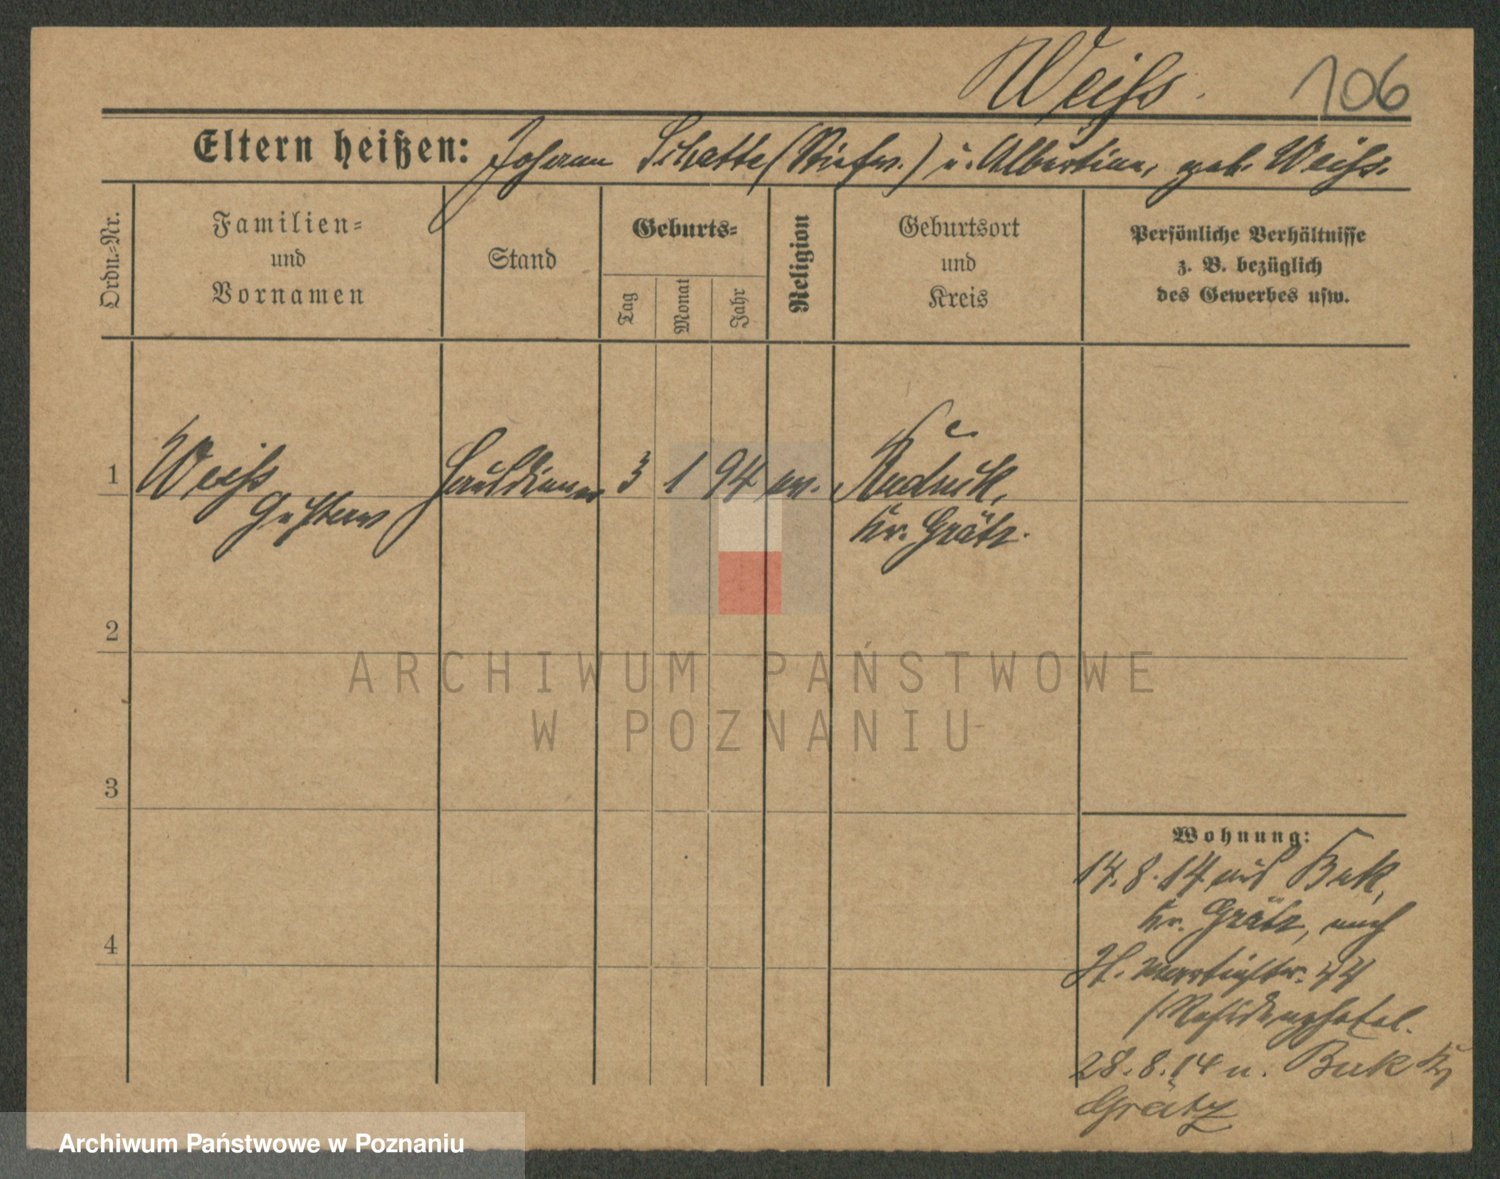 Weiss. 106
Eltern heißen: Johann Schatte (Stiefv.) u. Albertine, geb. Weiss.
Ordn.-Nr.
Familien-
und
Vornamen
Stand
Geburts-
Tag
Monat
Jahr
Religion
Geburtsort
und
Kreis
Persönliche Verhältnisse
z. B. bezüglich
des Gewerbes usw.
1 Weiss Hausdiener 3 1 94 ev.
Gustav Kr. Grätz.
2
3
4
Wohnung:
14.8.14 aus Buk,
Kr. Grätz, nach
St. Martinstr. 44
(Residenzhotel.
28.8.14 n. Buk Kr
Grätz
ARCHIWUM PAŃSTWOWE
W POZNANIU
Archiwum Państwowe w Poznaniu